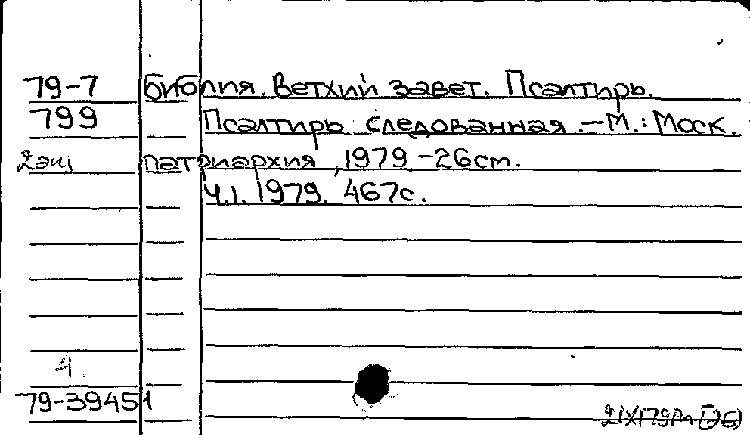 79-7 Библия. Ветхий завет. Псалтирь.
799 Псалтирь следованная. – М.: Моск.
2 экз патриархия, 1979 - 26 cm.
Ч.1. 1979. 467 с.
4.
79-39451